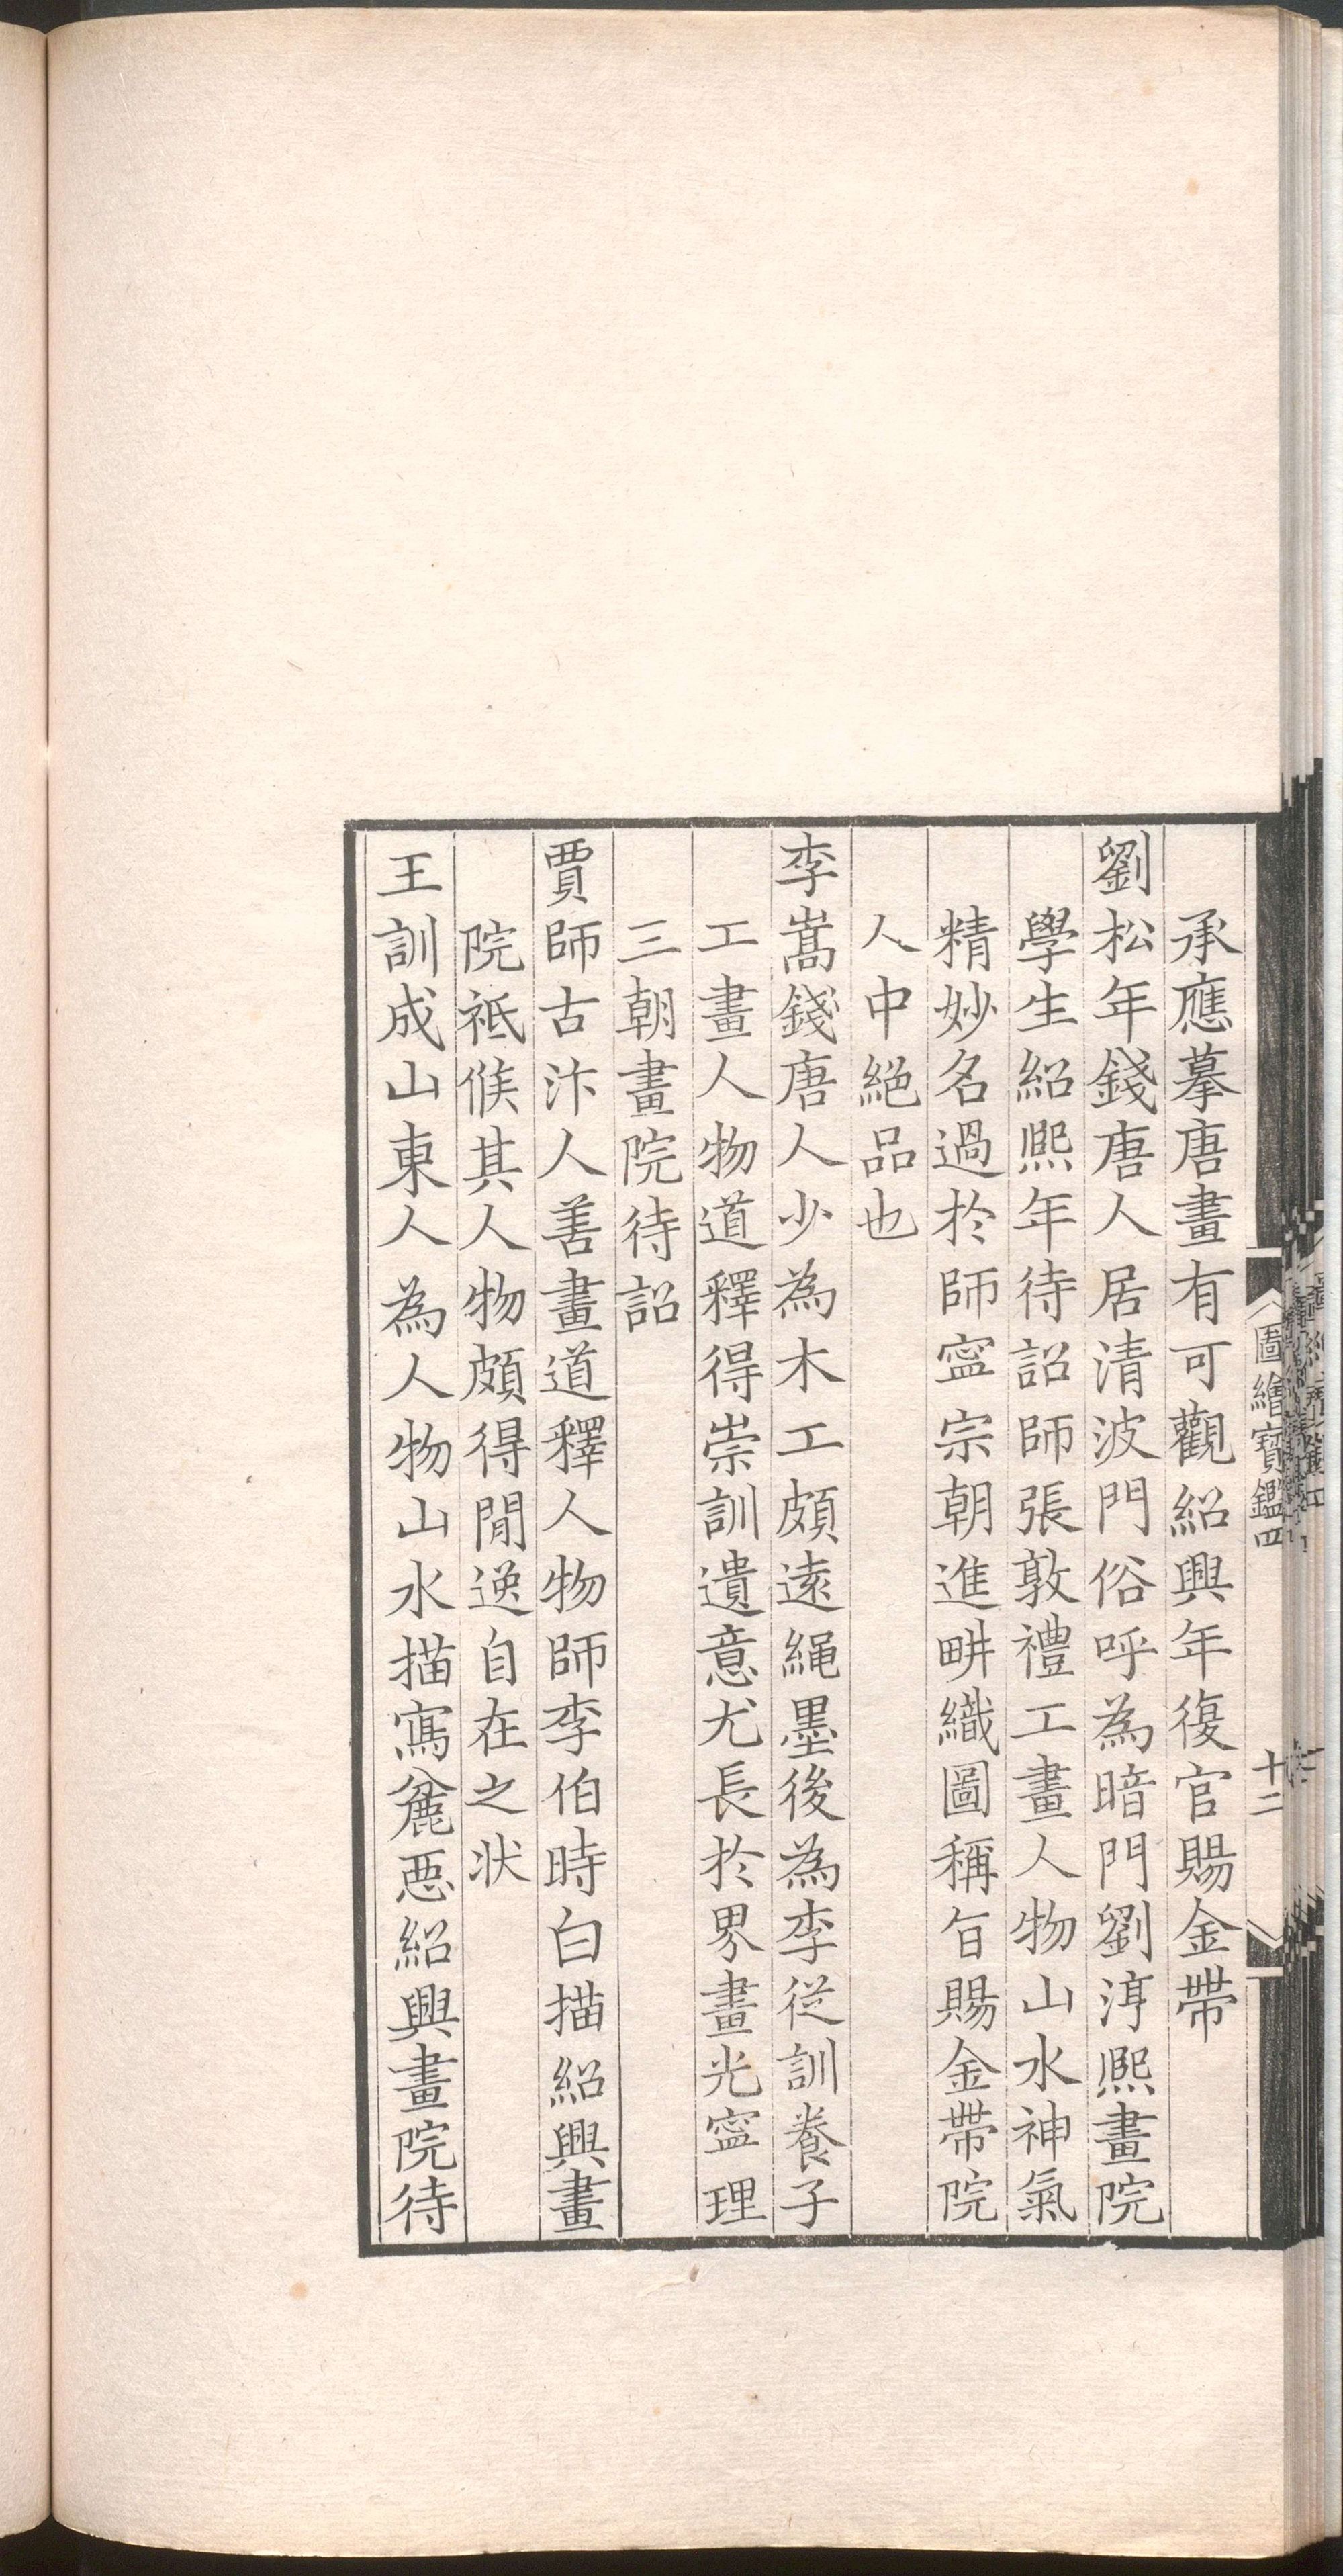 承應摹唐畫有可觀紹興年復官賜金帶
劉松年錢唐人居清波門俗呼為暗門劉淳熙畫院
學生紹熙年待詔師張敦禮工畫人物山水神氣
精妙名過於師寧宗朝進畊織圖稱旨賜金帶院
人中絕品也
李嵩錢唐人少為木工頗遠繩墨後為李從訓養子
工畫人物道釋得崇訓遺意尤長於界畫光寧理
三朝畫院待詔
賈師古汴人善畫道釋人物師李伯時白描紹興畫
院祗候其人物頗得閒逸自在之狀
王訓成山東人為人物山水描寫麄惡紹興畫院待
圖繪寶鑑四
十二